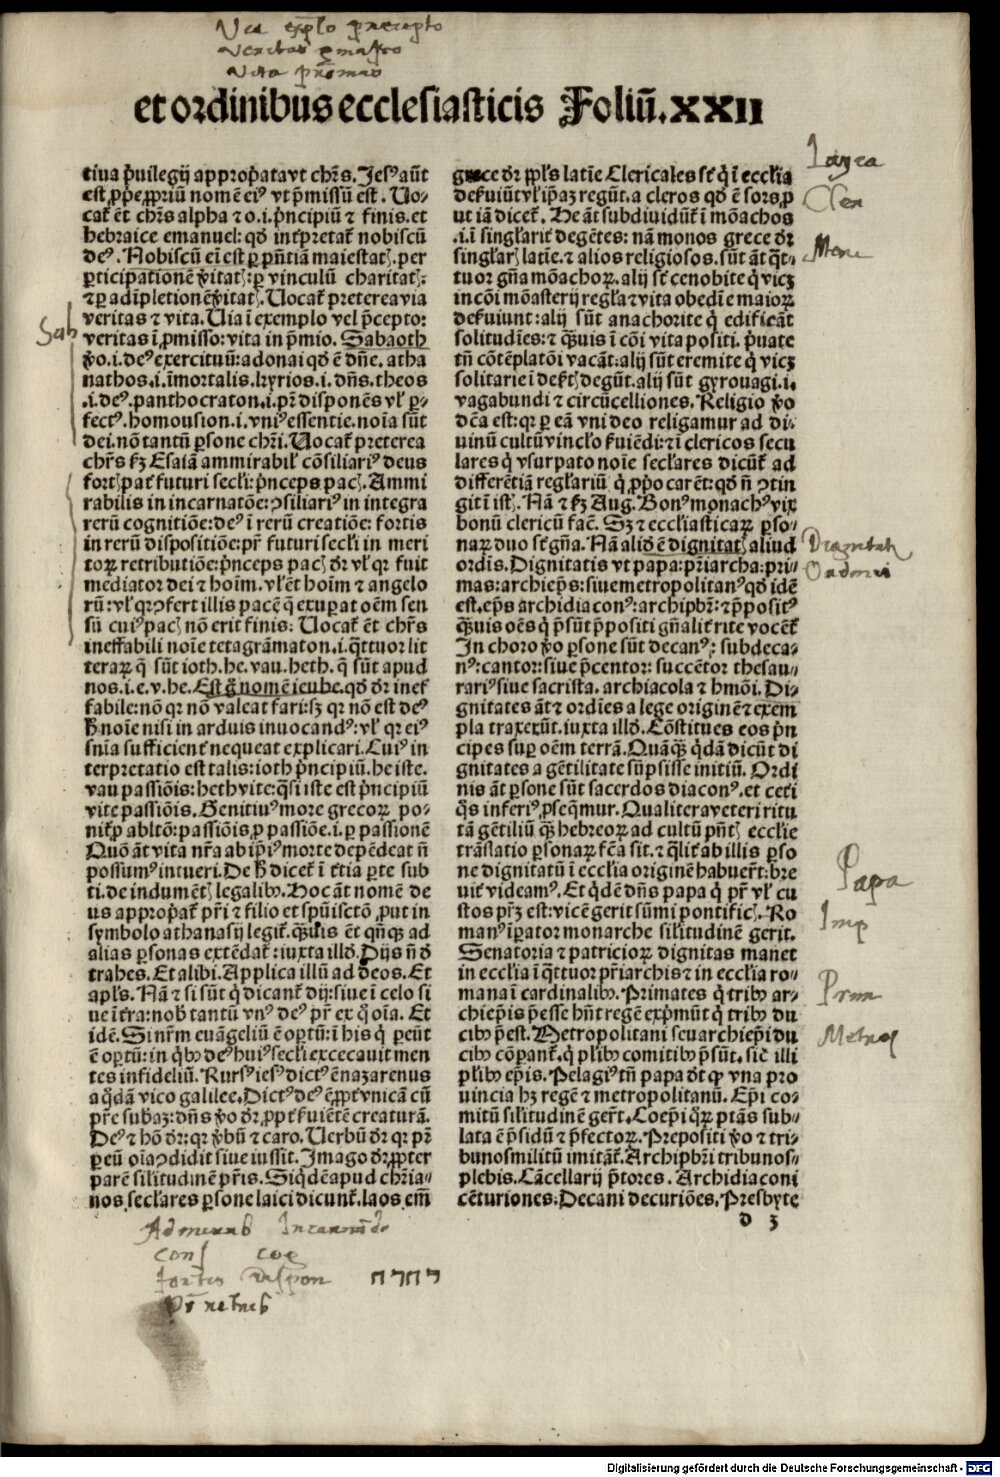 Via exēplo precepto
Veritas ꝓmisso
Vita premio
et ordinibus ecclesiasticis Foliū. XXII
tiua p̄uilegij approp̄atavt chr̄s. Jesꝰ aūt
est ꝓpe ꝓpriū nomē eiꝰ vt p̄missū est. Uo-
cat̄ ēt chr̄s alpha ⁊ o .i. p̄ncipiū ⁊ finis. et
hebraice emanuel: qď int̄pretat̄ nobiscū
deꝰ. Nobiscū em̄ est ꝑ pn̄tiā maiestatꝭ. per
ꝑticipationē v̄itatꝭ: ꝑ vinculū charitatꝭ:
⁊ ꝑ adīpletionē v̄itatꝭ. Uocat̄ preterea via
veritas ⁊ vita. Uia ī exemplo vel p̄cepto:
veritas ī ꝓmisso: vita in p̄mio. Sabaoth
v̄o .i. deꝰ exercituū: adonai qď ē dn̄e. atha
nathos .i. īmortalis. kyrios .i. dn̄s. theos
.i. deꝰ. panthocraton .i. pr̄a disponēs vl̄ ꝑ-
fectꝰ. homousion .i. vniꝰ essentie. noīa sūt
dei. nō tantū ꝑsone chr̄i. Uocat̄ preterea
chr̄s ẜꝫ Esaiā ammirabil̄ cōsiliariꝰ deus
fortꝭ pat̄ futuri secl̄i: p̄nceps pacꝭ. Ammi
rabilis in incarnatōe: ꝯsiliariꝰ in integra
rerū cognitiōe: deꝰ ī rerū creatiōe: fortis
in rerū dispositiōe: pr̄ futuri secl̄i in meri
toꝝ retributiōe: p̄nceps pacꝭ dr̄ vl̄ qr fuit
mediator dei ⁊ hoīm. vl̄ ēt hoīm ⁊ angelo
rū: vl̄ qr ꝯfert illis pacē q̄ exuꝑat oēm sen
sū cuiꝰ pacꝭ nō erit finis: Uocat̄ ēt chr̄s
ineffabili noīe tetagramaton .i. q̄ttuor lit
teraꝝ q̄ sūt ioth. he. vau. heth. q̄ sūt apud
nos .i. e. v. he. Est g̊ nomē ieuhe. qď dr̄ inef
fabile: nō qr nō valeat fari: sꝫ qr nō est deꝰ
ħ noīe nisi in arduis inuocandꝰ: vl̄ qr eiꝰ
sn̄ia sufficient̄ nequeat explicari. Cuiꝰ in
terpretatio est talis: ioth p̄ncipiū. he iste.
vau passiōis: heth vite: q̄si iste est p̄ncipiū
vite passiōis. Genitiuꝰ more grecoꝝ po-
nit̄ ꝓ abltō: passiōis ꝓ passiōe .i. ꝑ passionē
Quō āt vita nr̄a ab ip̄iꝰ morte depēdeat n̄
possumꝰ intueri. De ħ dicet̄ ī t̄tia ꝑte sub
ti. de indumētꝭ legalibꝰ. Hoc āt nomē de
us approp̄at̄ pr̄i ⁊ filio et spūisctō ꝓut in
symbolo athanasij legit̄. q̄uis ēt qn̄qꝫ ad
alias ꝑsonas extēdat̄: iuxta illď. Dijs n̄ ď
trahes. Et alibi. Applica illū ad deos. Et
apl̄s. Nā ⁊ si sūt q̇ dicant̄ dij: siue ī celo si
ue ī t̄ra: nob̄ tantū vnꝰ deꝰ pr̄ ex q̊ oīa. Et
idē. Si nr̄m euāgeliū ē oꝑtū: ī his q̇ ꝑeūt
ē oꝑtū: in q̇bꝰ deꝰ huiꝰ secl̄i excecauit men
tes infideliū. Rursꝰ iesꝰ dictꝰ ē nazarenus
a q̊dā vico galilee. Dictꝰ deꝰ ē ꝓpt̄ vnicā cū
pr̄e subaz: dn̄s v̄o dr̄ ꝓpt̄ ẜuiētē creaturā.
Deꝰ ⁊ hō dr̄: qr v̄bū ⁊ caro. Uerbū dr̄ qr pr̄
ꝑ eū oīa ꝯdidit siue iussit. Imago dr̄ ꝓpter
parē sil̄itudinē pr̄is. Siq̇dē apud chr̄ia-
nos secl̄ares ꝑsone laici dicunt̄. laos em̄
grece dr̄ ppl̄s latīe. Clericales st̄ q̇ ī eccl̄ia
deẜuiūt vl̄ ip̄aꝫ regūt. a cleros qď ē sors, ꝓ
ut iā dicet̄. He āt subdiuidūt̄ ī mōachos
.i. ī singl̄arit̄ degētes: nā monos grece dr̄
singl̄arꝭ latīe. ⁊ alios religiosos. sūt āt q̄t-
tuor gn̄a mōachoꝝ. alij st̄ cenobite q̇ viuꝫ
in cōi mōasterij regl̄a ⁊ vita obedīe maioꝝ
deẜuiunt: alij sūt anachorite q̇ edificāt
solitudīes: ⁊ q̄uis ī cōi vita positi. p̄uate
tn̄ cōtēplatōi vacāt: alij sūt eremite q̇ viuꝫ
solitarie ī deẜtꝭ degūt. alij sūt gyrouagi .i.
vagabundi ⁊ circūcelliones. Religio v̄o
dc̄a est: qr ꝑ eā vni deo religamur ad di-
uinū cultū vincl̄o ẜuiēdi: ⁊ ī clericos secu
lares q̇ vsurpato noīe secl̄ares dicūt̄ ad
differētiā regl̄ariū q̇ ꝓp̊o carēt: qď n̄ ꝯtin
git ī istꝭ. Nā ⁊ ẜꝫ Aug. Bonꝰ monachꝰ vix
bonū clericū facit̄. Sꝫ ⁊ eccl̄iasticaꝝ ꝑso-
naꝝ duo st̄ gn̄a. Nā aliď ē dignitatꝭ aliud
ordīs. Dignitatis vt papa: pr̄iarcha: pri-
mas: archiep̄s: siue metropolitanꝰ qď idē
est. ep̄s archidiaconꝰ: archipb̄r: ⁊ p̄positꝰ
q̄uis oēs q̇ p̄sūt p̄positi gn̄alit̄ rite vocēt̄
In choro v̄o ꝑsone sūt decanꝰ: subdeca-
nꝰ: cantor: siue p̄centor: succētor thesau-
rariꝰ siue sacrista. archiacola ⁊ hmōi. Di-
gnitates āt ⁊ ordīes a lege originē ⁊ exem
pla traxerūt. iuxta illď. Cōstitues eos p̄n
cipes suꝑ oēm terrā. Quāqꝫ q̊dā dicūt di
gnitates a gētilitate sūpsisse initiū. Ordi
nis āt ꝑsone sūt sacerdos diaconꝰ. et cet̄i
q̊s inferiꝰ ꝓseq̄mur. Qualiter a veteri ritu
tā gētiliū q̄ꝫ hebreoꝝ ad cultū pn̄tꝭ ecclie
trāslatio ꝑsonaꝝ fc̄a sit. ⁊ q̄lit̄ ab illis ꝑso
ne dignitatū ī ecclia originē habuer̄t: bre
uit̄ videamꝰ. Et q̇dē dn̄s papa q̇ pr̄ vl̄ cu
stos pr̄ꝫ est: vicē gerit sūmi pontificꝭ. Ro
manꝰ īꝑator monarche sil̄itudinē gerit.
Senatoria ⁊ patricioꝝ dignitas manet
in eccl̄ia ī q̄ttuor pr̄iarchis ⁊ in eccl̄ia ro-
mana ī cardinalibꝰ. Primates q̇ tribꝰ ar-
chiep̄is p̄esse hn̄t regē exp̄mūt q̇ tribꝰ du
cibꝰ p̄est. Metropolitani seu archiep̄i du
cibꝰ cōꝑant̄. q̇ pl̄ibꝰ comitibꝰ p̄sūt. sic̄ illi
pl̄ibꝰ ep̄is. Pelagiꝰ tn̄ papa dt̄ ꝙ vna pro
uincia hꝫ regē ⁊ metropolitanū. Ep̄i co-
mitū sil̄itudinē ger̄t. Coep̄i q̊ꝝ ptās sub-
lata ē p̄sidū ⁊ p̄fectoꝝ. Prepositi v̄o ⁊ tri-
bunos militū imitāt̄. Archipb̄ri tribunos-
plebis. Cācellarij p̄tores. Archidiaconi
cēturiones. Decani decuriōes. Presbyte
d 3
Sab
Layca
Cler
Mona
Dignitatꝭ
Ordinis
Papa
Imp
Prim
Metrop
Admirabs Incarnando
Cons cog
fortis dispon
Pr̄ retrib
יהוה
Digitalisierung gefördert durch die Deutsche Forschungsgemeinschaft - DFG